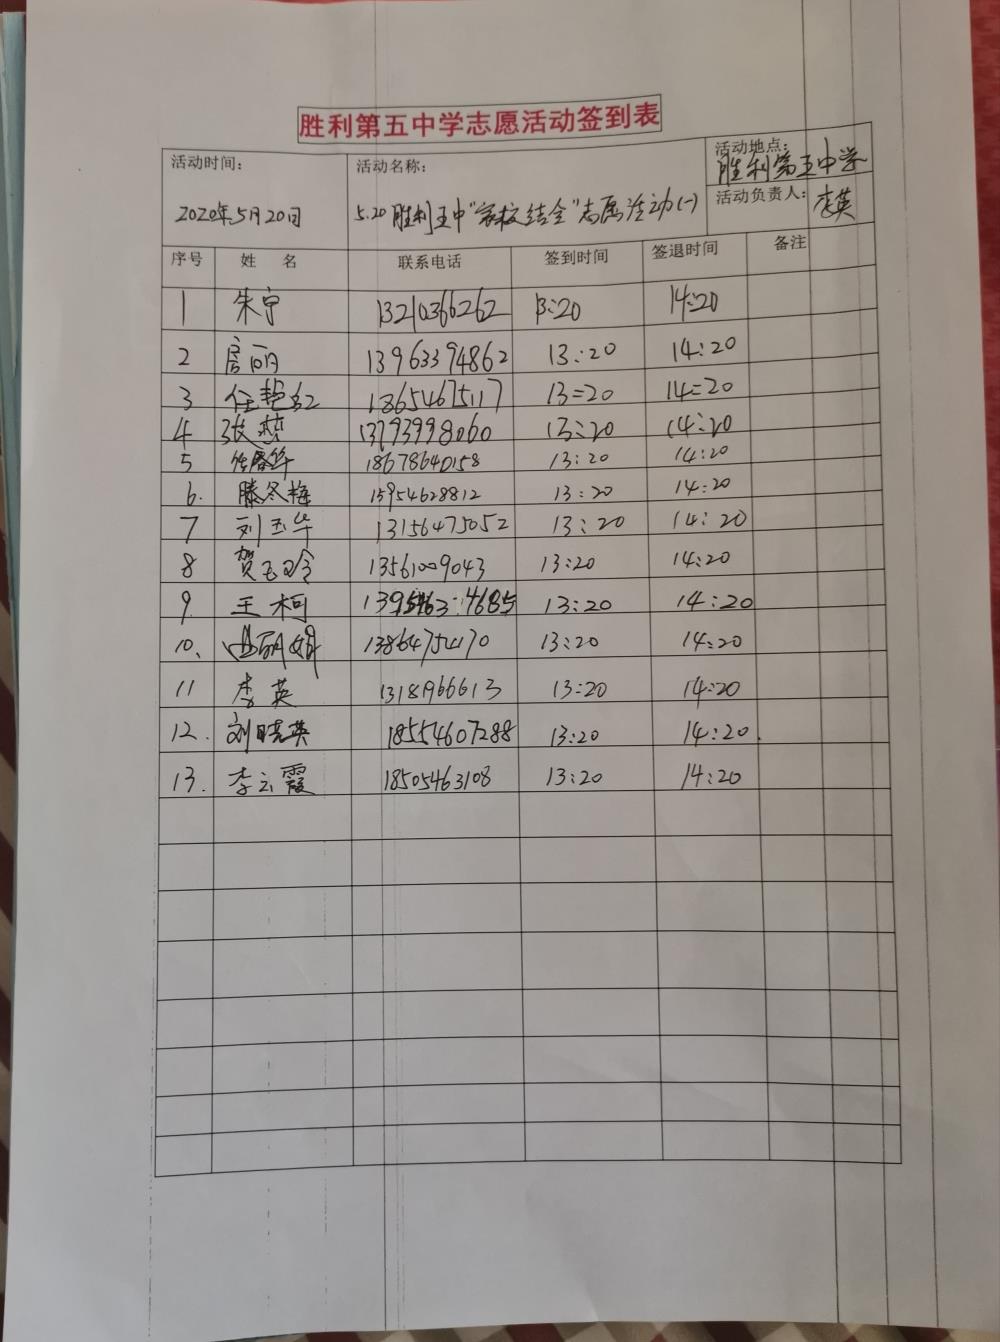 胜利第五中学志愿活动签到表
活动时间： 活动名称： 活动地点： 胜利第五中学
2020年5月20日 5.20胜利五中"家校结全"志愿活动(一) 活动负责人： 李英
序号 姓 名 联系电话 签到时间 签退时间 备注
1 朱宁 13210366262 13:20 14:20
2 房丽 13963394862 13:20 14:20
3 任艳红 18654675117 13:20 14:20
4 张梦 13793998060 13:20 14:20
5 18678640158 13:20 14:20
6. 滕冬梅 15954628812 13:20 14:20
7 刘玉华 13156475052 13:20 14:20
8 贺玉玲 13561009043 13:20 14:20
9. 王柯 13:20 14:20
10、 13:20 14:20
11 李英 1318966613 13:20 14:20
12. 刘晓英 18554607288 13:20 14:20.
13. 李云霞 18505463108 13:20 14:20